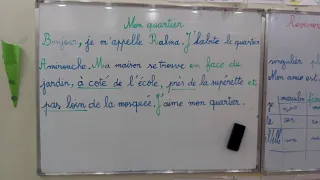 Mon quartier
Bonjour, je m'appelle Rahma. J'habite le quartier
Amirouche. Ma maison se trouve en face du
jardin, à coté de l'école, près de la supérette et
pas loin de la mosquée. J'aime mon quartier.
singulier
Mon ami est
masculin
je